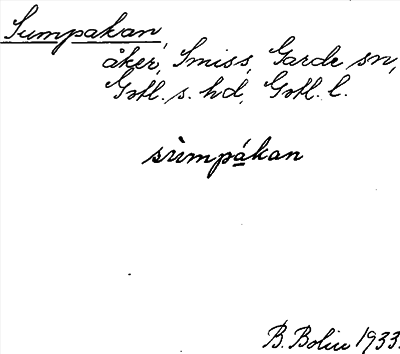 Sumpakan,
åker, Smiss, Garde sn,
Gotl. s. hd, Gotl. l.
sùmpá̱kan
B. Bolin 1933.